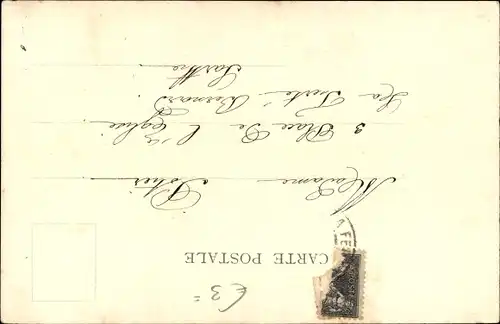 CARTE POSTALE
Madame Potier
3 Place De l'Eglise
La Ferté Bernard
Sarthe
€ 3=